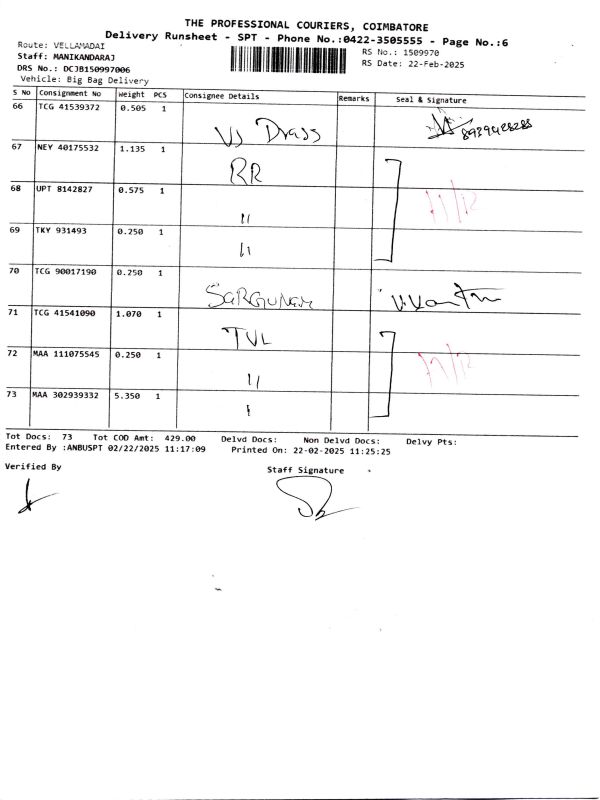 THE PROFESSIONAL COURIERS, COIMBATORE
Delivery Runsheet - SPT - Phone No.:0422-3505555 - Page No.:6
Route: VELLAMADAI
RS No.: 1509970
Staff: MANIKANDARAJ
RS Date: 22-Feb-2025
DRS No.: DCJB150997006
Vehicle: Big Bag Delivery
S No Consignment No Weight PCS Consignee Details Remarks Seal & Signature
66 TCG 41539372 0.505 1
Vs Drass
67 NEY 40175532 1.135 1
RR
68 UPT 8142827 0.575 1
"
69 TKY 931493 0.250 1
"
70 TCG 90017190 0.250 1
SARGUNAM
71 TCG 41541090 1.070 1
TVL
72 MAA 111075545 0.250 1
"
73 MAA 302939332 5.350 1
Tot Docs: 73 Tot COD Amt: 429.00 Delvd Docs: Non Delvd Docs: Delvy Pts:
Entered By :ANBUSPT 02/22/2025 11:17:09 Printed On: 22-02-2025 11:25:25
Verified By
Staff Signature